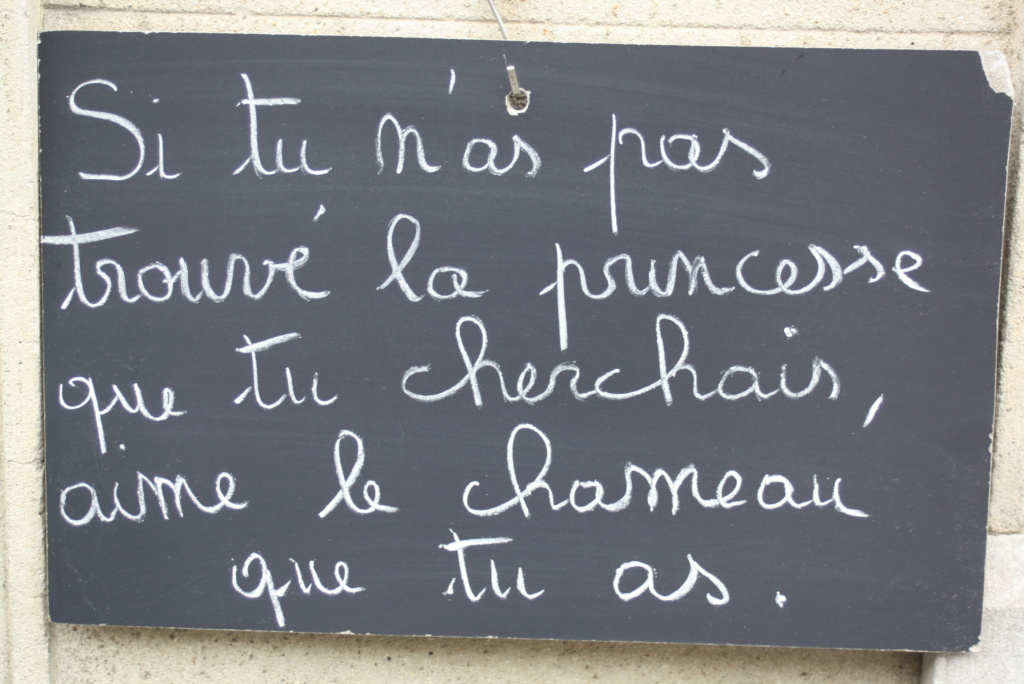 Si tu n'as pas
trouvé la princesse
que tu cherchais,
aime le chameau
que tu as.